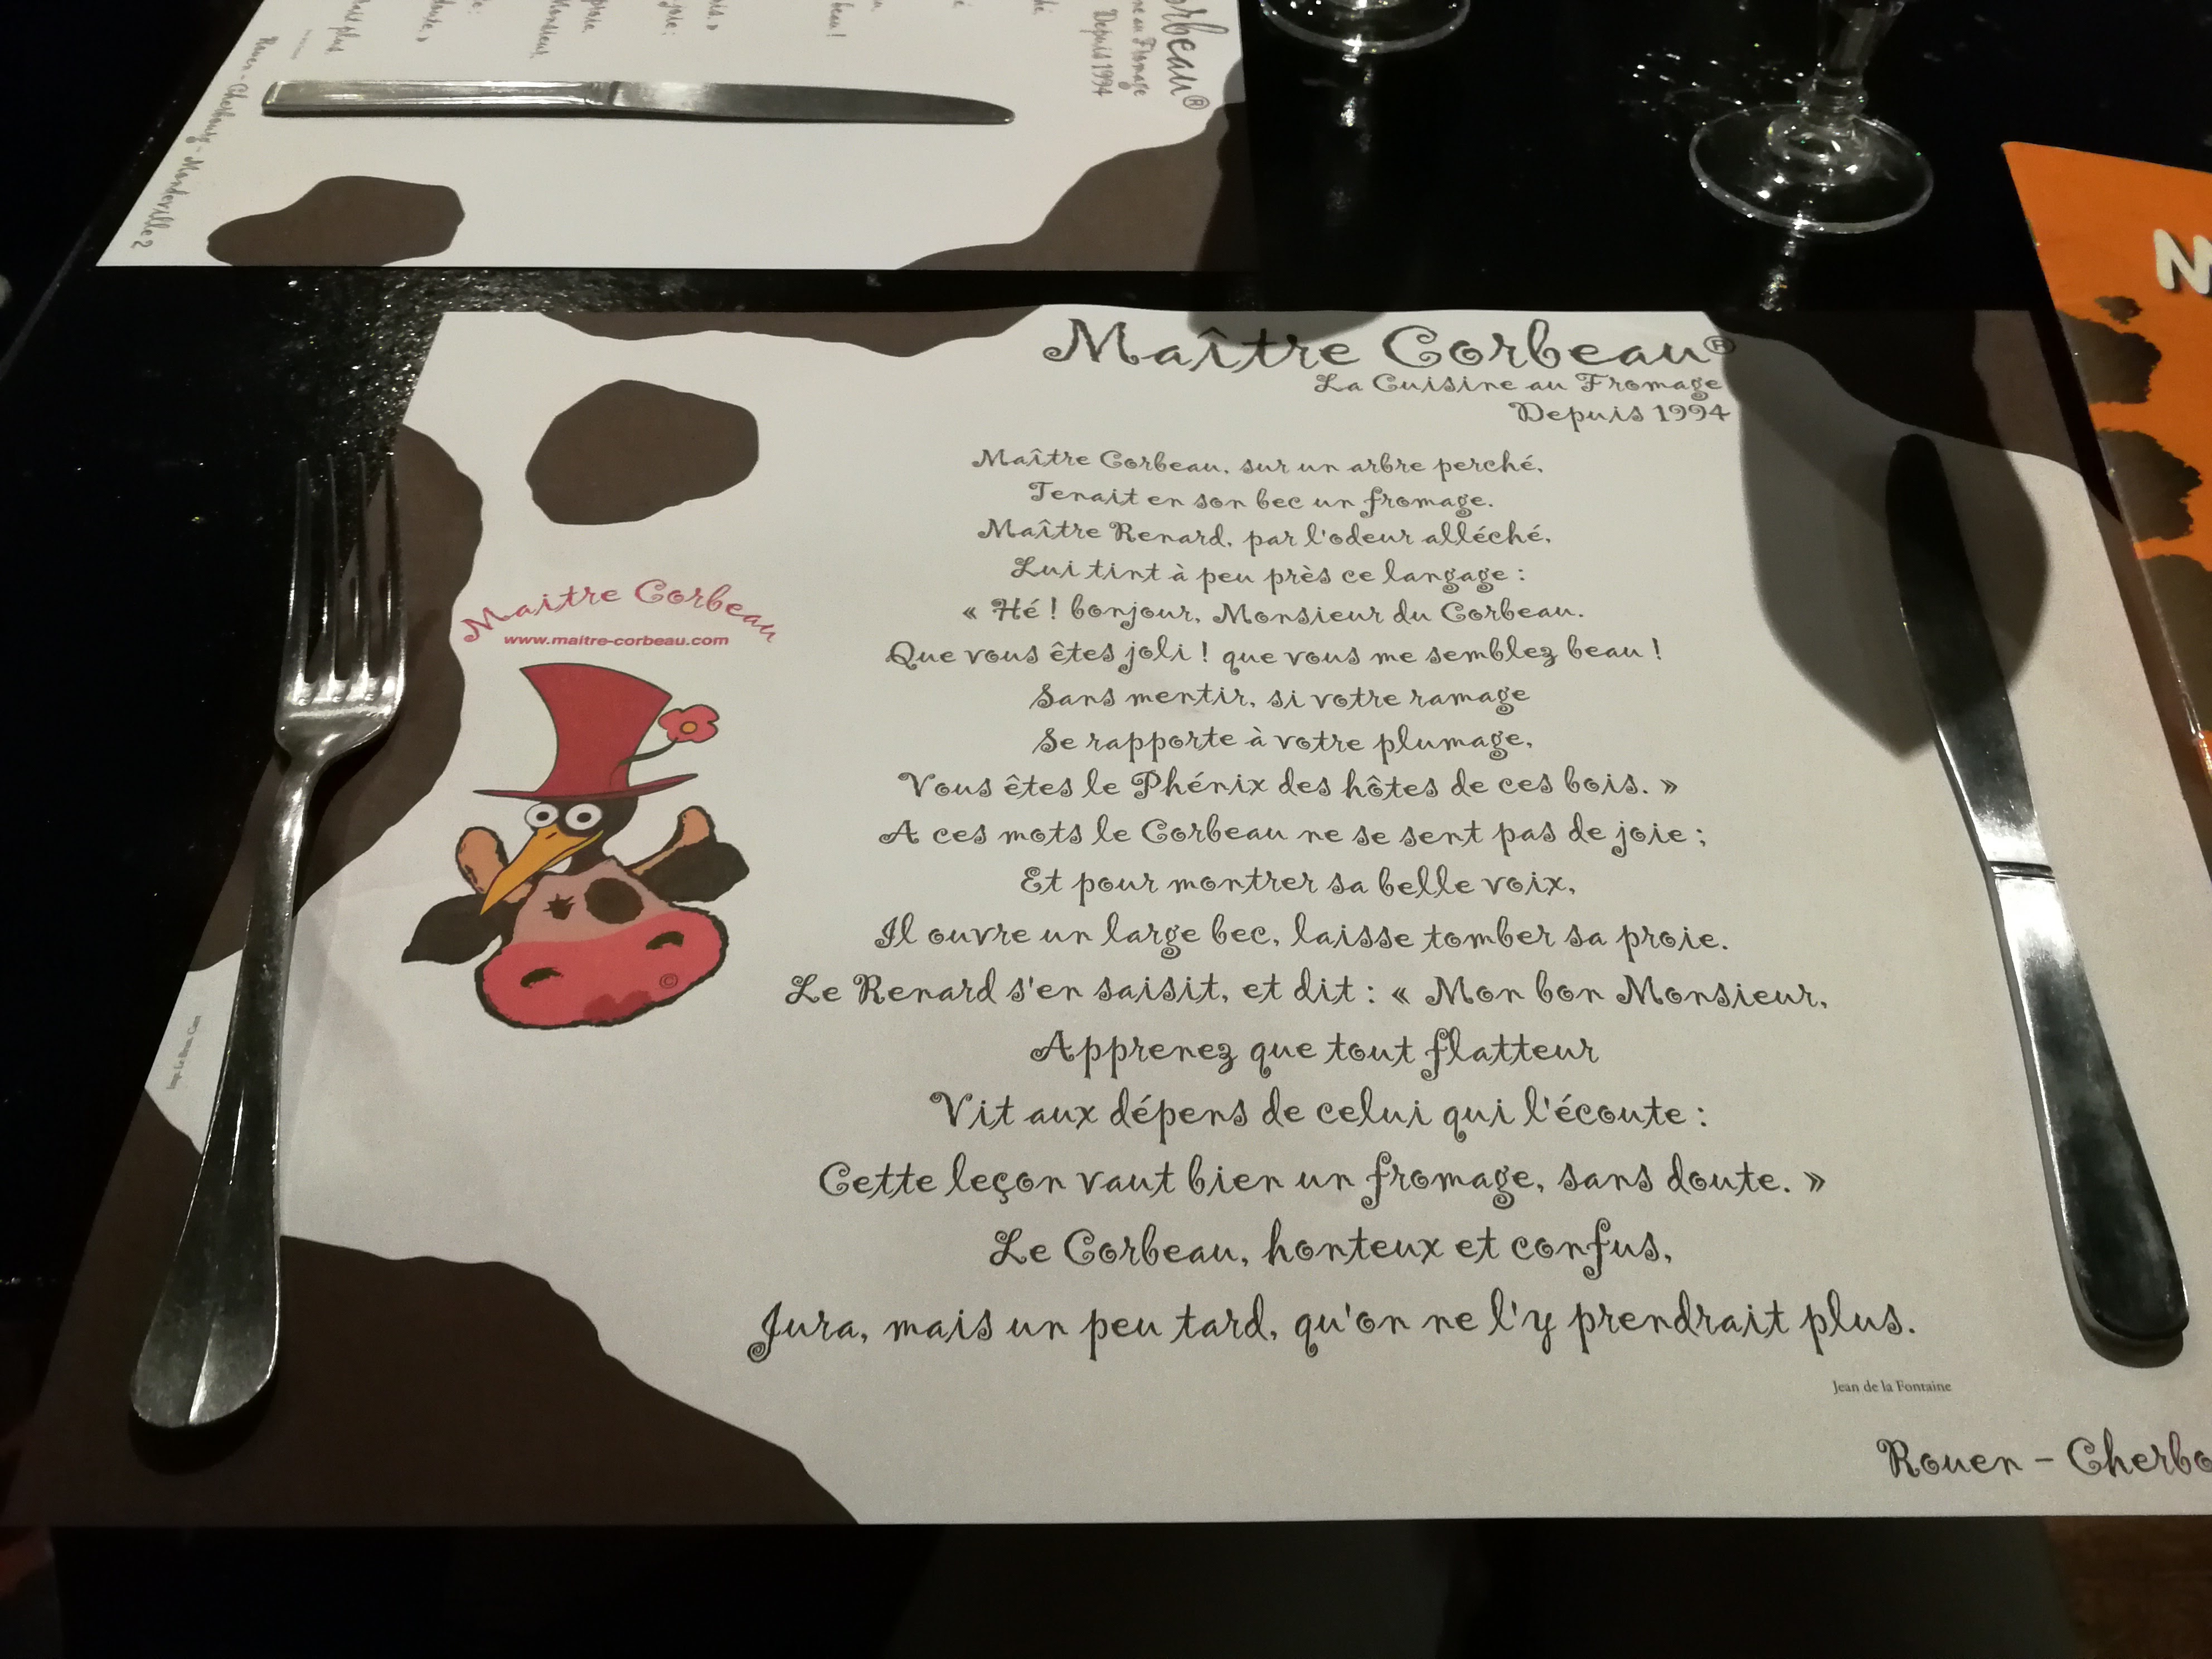 orbeau®
ne au Fromage
Depuis 1994
hé
é
beau !
is. »
joie ;
proie.
Monsieur,
te :
doute. »
plus
Rouen - Cherbourg - Mondeville 2
Maître Corbeau®
La Cuisine au Fromage
Depuis 1994
Maître Corbeau, sur un arbre perché,
Tenait en son bec un fromage.
Maître Renard, par l'odeur alléché,
Lui tint à peu près ce langage :
« Hé ! bonjour, Monsieur du Corbeau.
Que vous êtes joli ! que vous me semblez beau !
Sans mentir, si votre ramage
Se rapporte à votre plumage,
Vous êtes le Phénix des hôtes de ces bois. »
A ces mots le Corbeau ne se sent pas de joie ;
Et pour montrer sa belle voix,
Il ouvre un large bec, laisse tomber sa proie.
Le Renard s'en saisit, et dit : « Mon bon Monsieur,
Apprenez que tout flatteur
Vit aux dépens de celui qui l'écoute :
Cette leçon vaut bien un fromage, sans doute. »
Le Corbeau, honteux et confus,
Jura, mais un peu tard, qu'on ne l'y prendrait plus.
Jean de la Fontaine
Rouen - Cherbo
Maitre Corbeau
www.maitre-corbeau.com
©
N